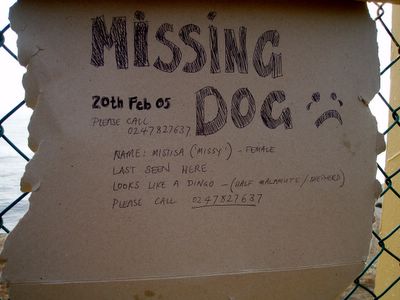 MISSING
20th Feb 05
DOG
PLEASE CALL
0247827637
NAME: MISTISA ('MISSY') - FEMALE
LAST SEEN HERE
LOOKS LIKE A DINGO - (HALF MALAMUTE/SHEPHERD)
PLEASE CALL 0247827637